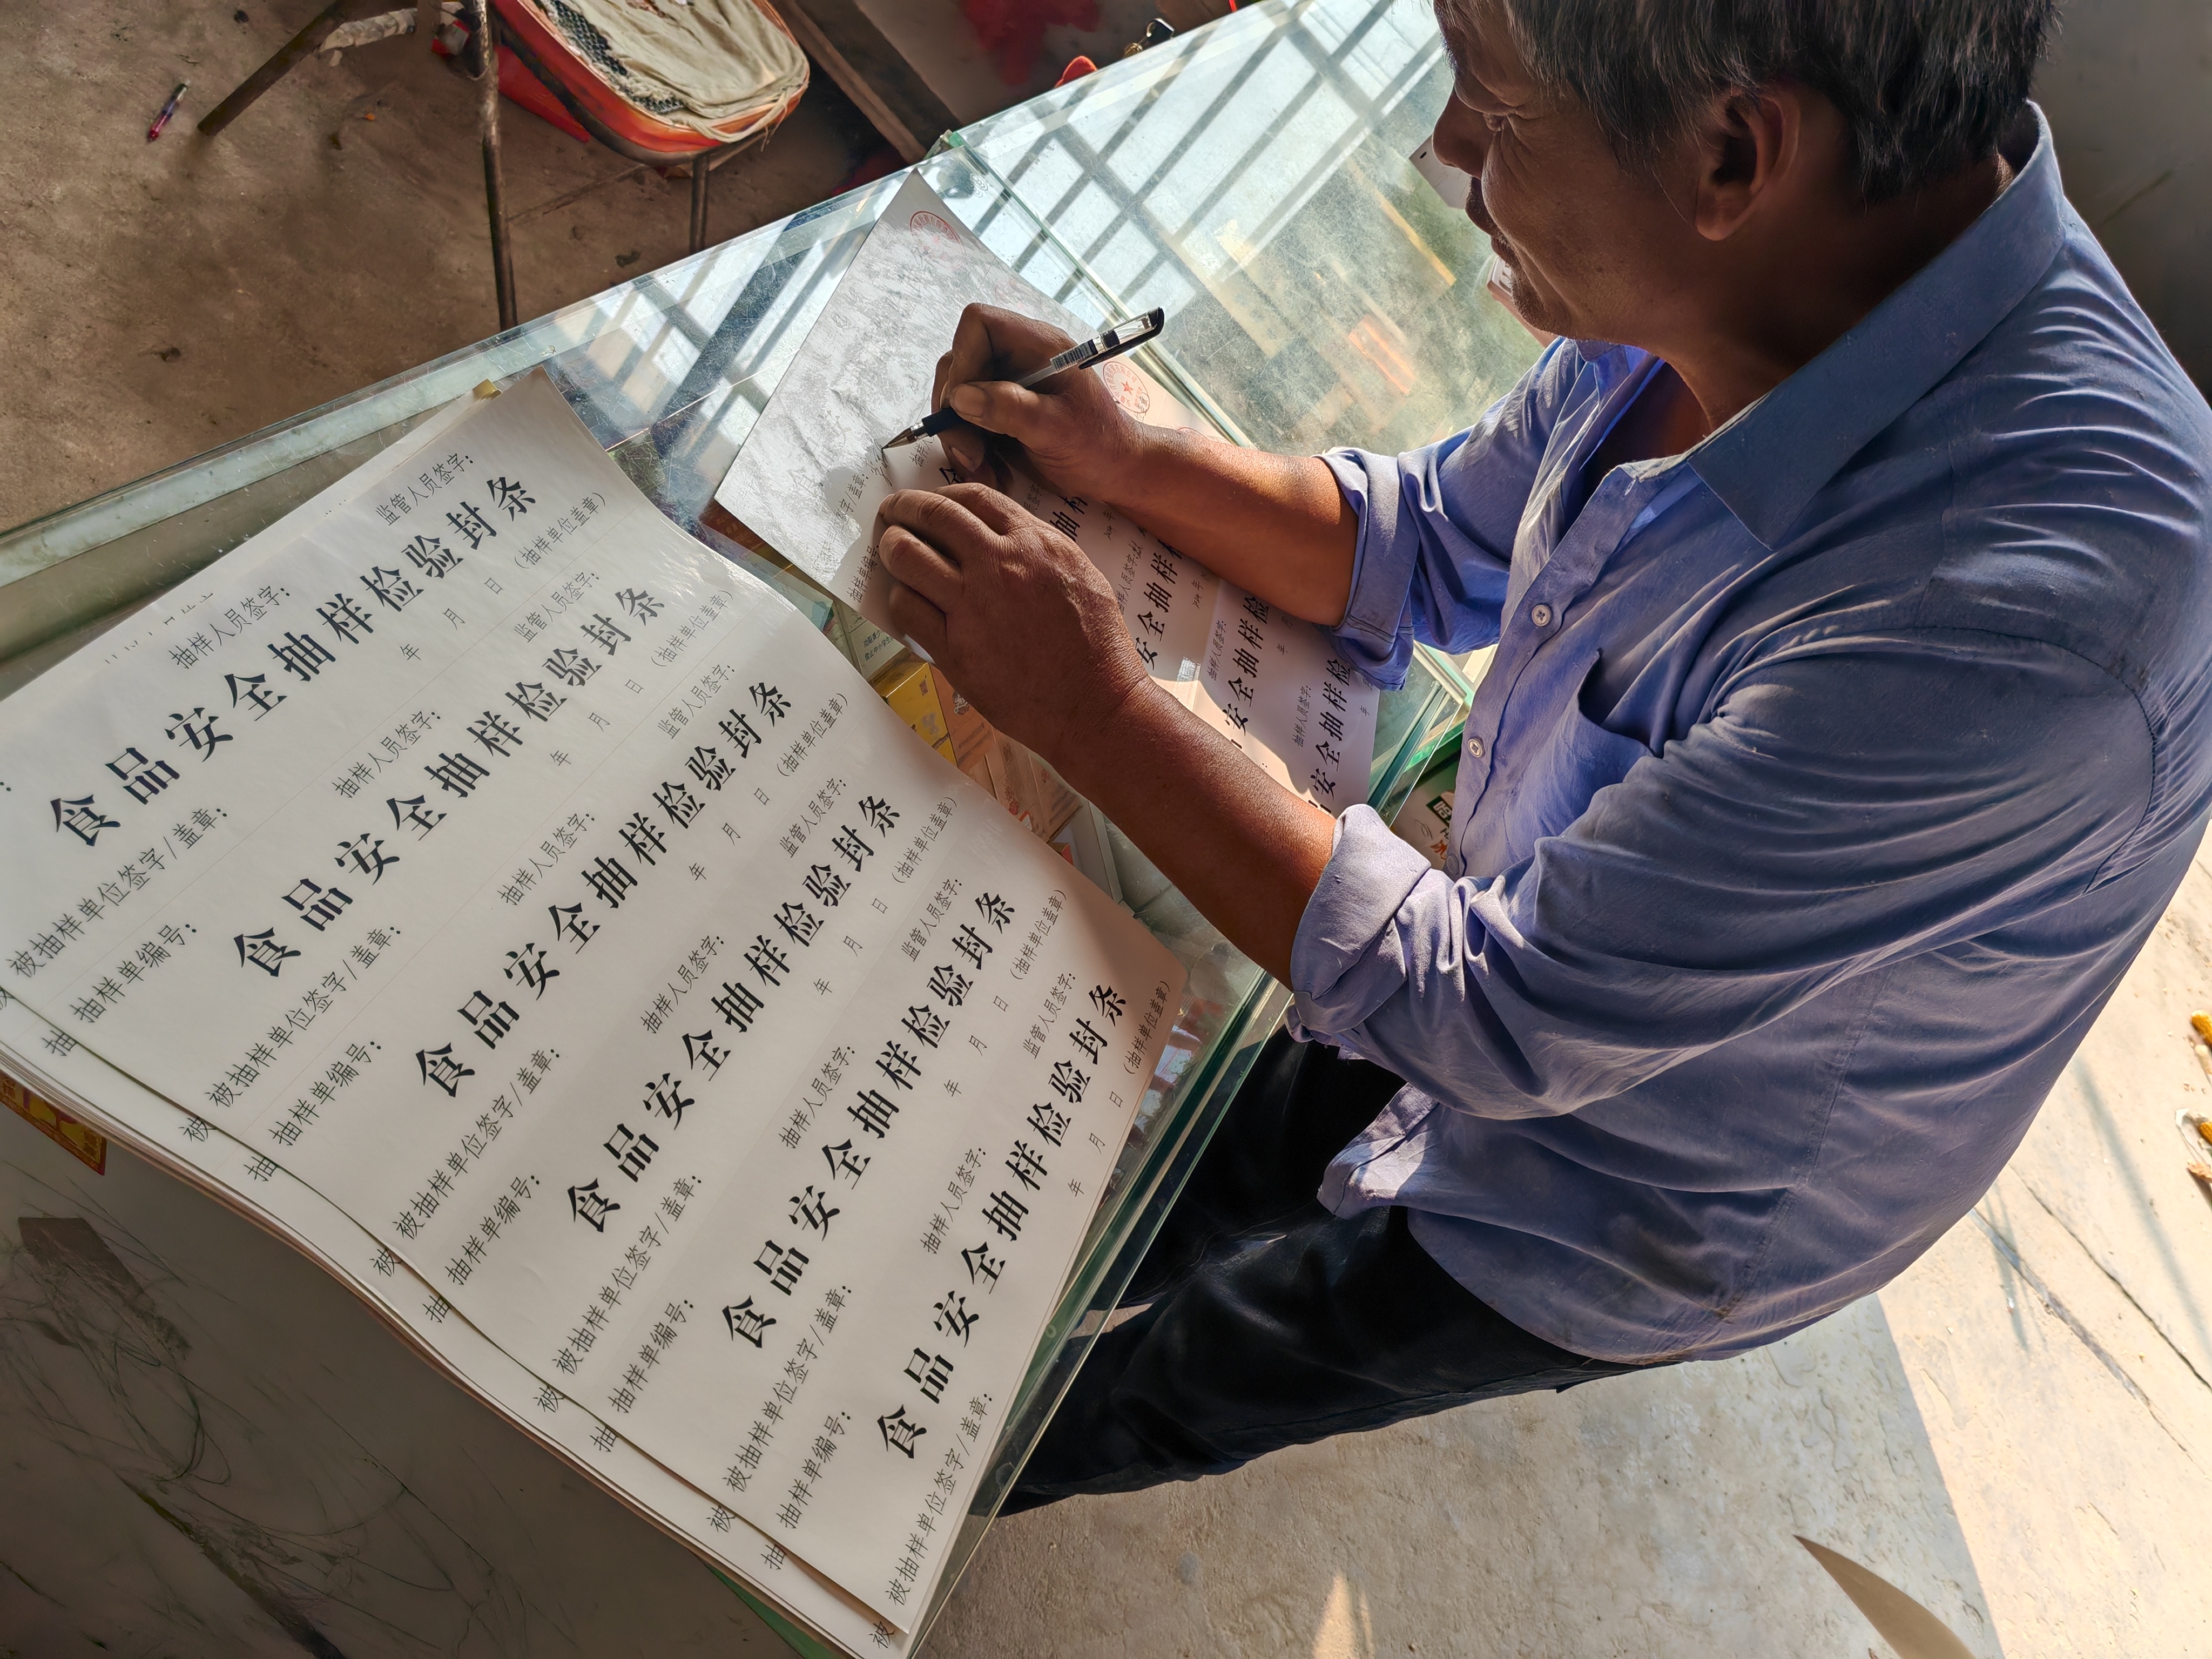 抽样人员签字： 监管人员签字：
食品安全抽样检验封条
被抽样单位签字/盖章： 年 月 日 （抽样单位盖章）
抽样单编号： 抽样人员签字： 监管人员签字：
食品安全抽样检验封条
被抽样单位签字/盖章： 年 月 日 （抽样单位盖章）
抽样单编号： 抽样人员签字： 监管人员签字：
食品安全抽样检验封条
被抽样单位签字/盖章： 年 月 日 （抽样单位盖章）
抽样单编号： 抽样人员签字： 监管人员签字：
食品安全抽样检验封条
被抽样单位签字/盖章： 年 月 日 （抽样单位盖章）
抽样单编号： 抽样人员签字： 监管人员签字：
食品安全抽样检验封条
被抽样单位签字/盖章： 年 月 日 （抽样单位盖章）
抽样单编号： 抽样人员签字： 监管人员签字：
食品安全抽样检验封条
被抽样单位签字/盖章： 年 月 日 （抽样单位盖章）
抽
被
抽
被
抽
被
抽
被
抽
被
字/盖章：
抽样单编号
抽样
安全抽样
抽样人员签字：
安全抽样检
年
抽样人员签字：
安全抽样检
年